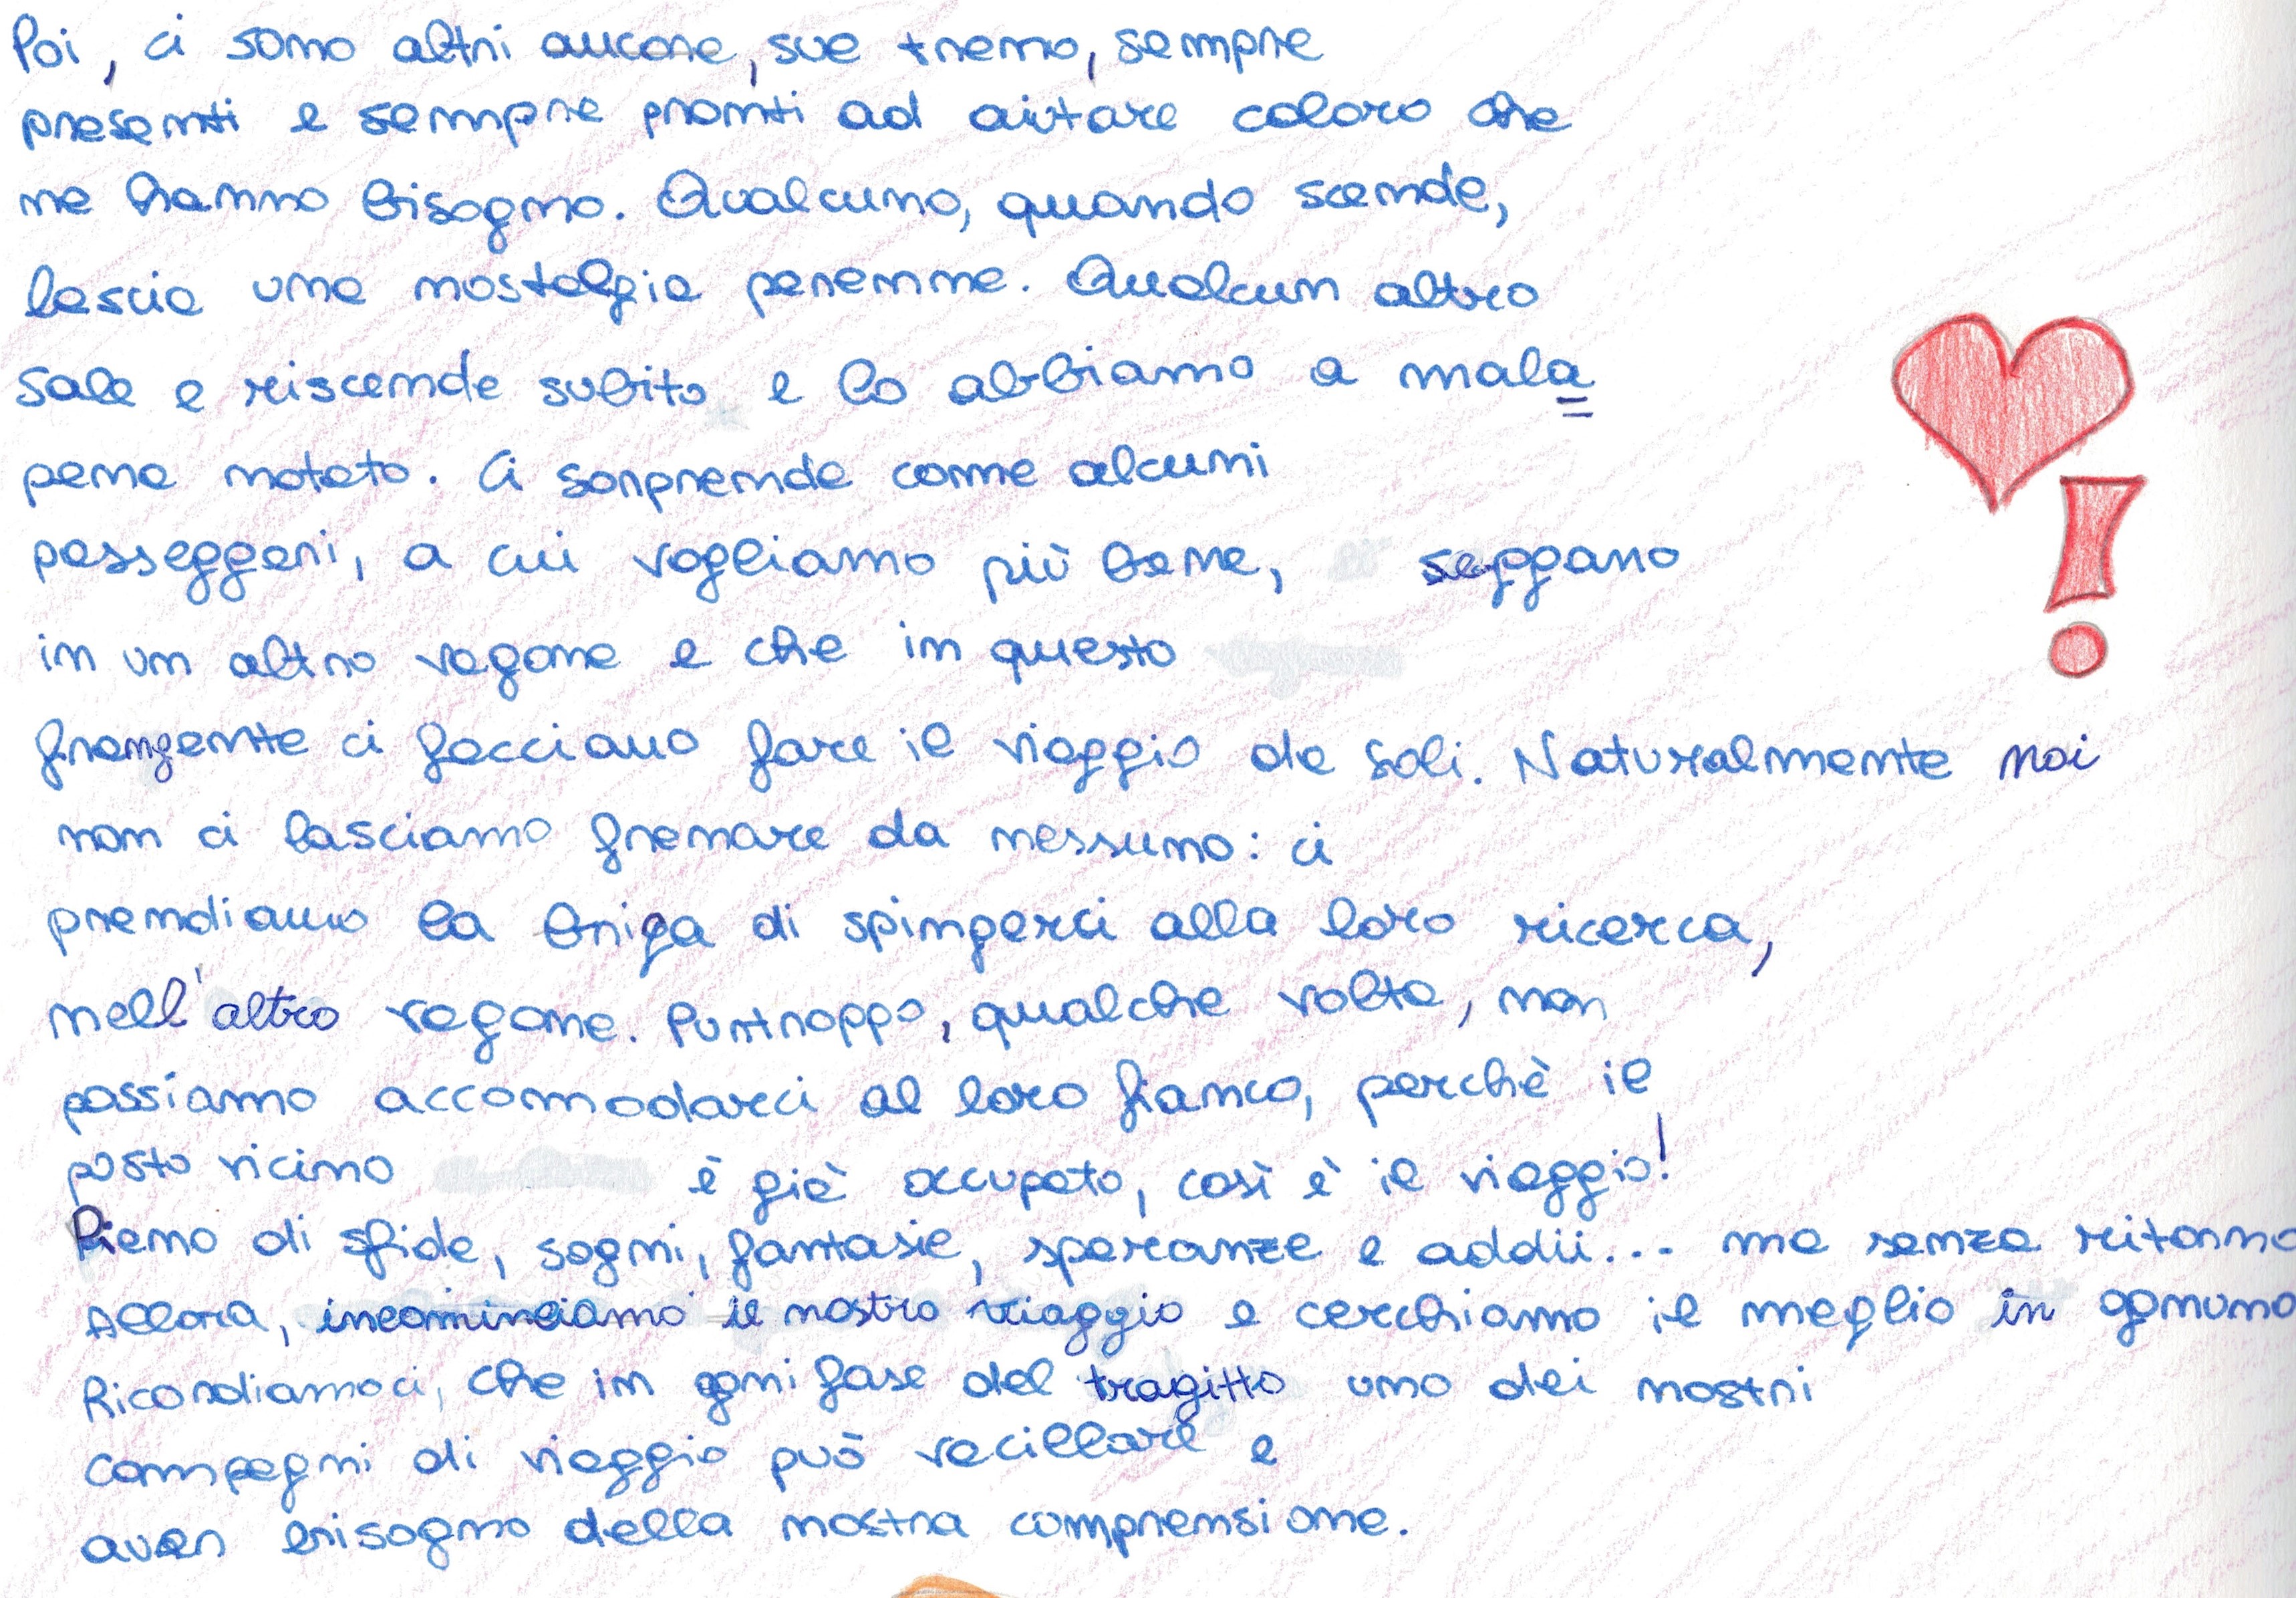 Poi, ci sono altri ancora, sue treno, sempre
presenti e sempre pronti ad aiutare coloro che
ne hanno bisogno. Qualcuno, quando scende,
lascia una nostalgia perenne. Qualcun altro
sale e riscende subito e lo abbiamo a mala
pena notato. Ci sorprende come alcuni
passeggeri, a cui vogliamo più bene, seggano
in un altro vagone e che in questo
frangente ci facciano fare il viaggio da soli. Naturalmente noi
non ci lasciamo frenare da nessuno: ci
prendiamo la briga di spingerci alla loro ricerca,
nell'altro vagone. Purtroppo, qualche volta, non
possiamo accomodarci al loro fianco, perchè il
posto vicino è già occupato, così è il viaggio!
Pieno di sfide, sogni, fantasie, speranze e addii... ma senza ritorno
Allora, incominciamo il nostro viaggio e cerchiamo il meglio in ognuno
Ricordiamoci, che in ogni fase del tragitto uno dei nostri
compagni di viaggio può vacillare e
aver bisogno della nostra comprensione.